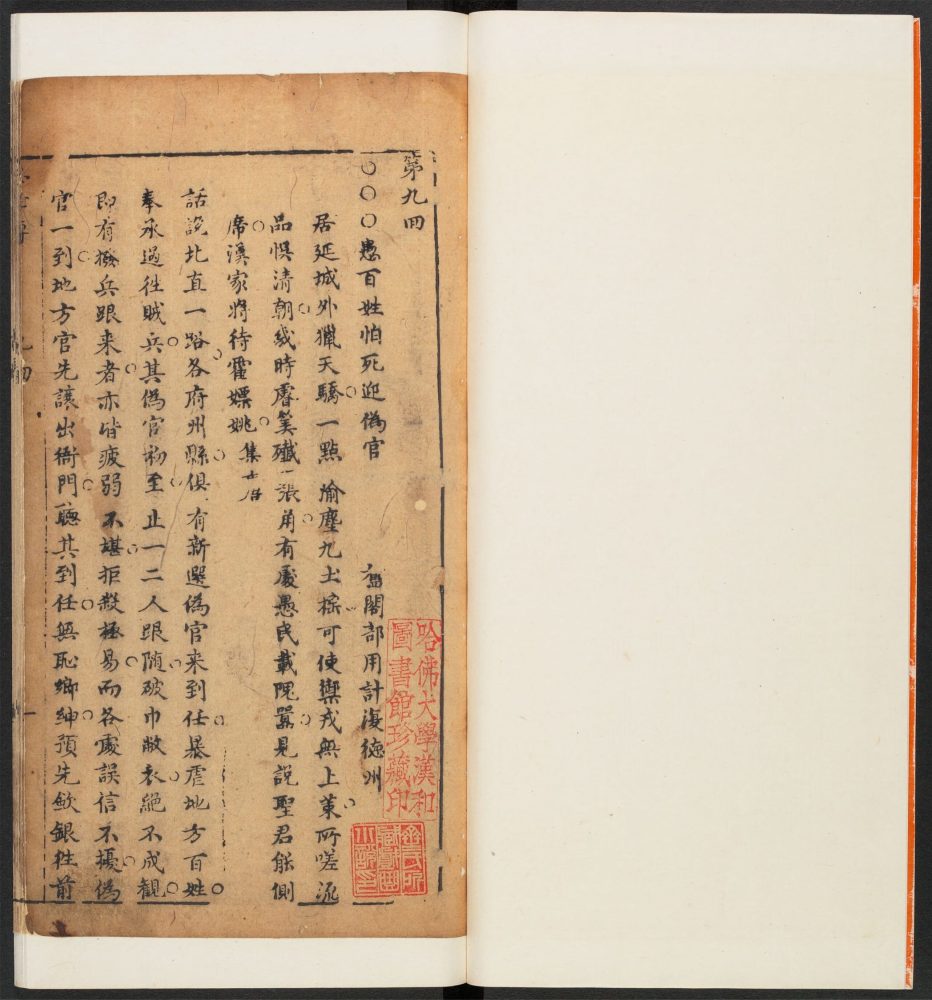 第九回
〇〇〇愚百姓怕死迎偽官 閣部用計復德州
居延城外獵天驕一點 塵九土搖可使輿戎無上策所嗟流
品悞清朝幾時睿筭殲張角有處愚民載隗囂見說聖君能側
席溪家將待霍嫖姚 集
話說北直一路各府州縣俱有新選偽官来到任暴虐地方百姓
奉承過徃賊兵其偽官初至止一二人跟随破巾敝衣絕不成観
即有撥兵跟来者亦皆疲弱不堪拒殺極易而各處誤信不擾偽
官一到地方官先讓出衙門聽其到任無恥鄉紳預先歛銀徃前
九回
一
哈佛大學漢和
圖書館珍藏印